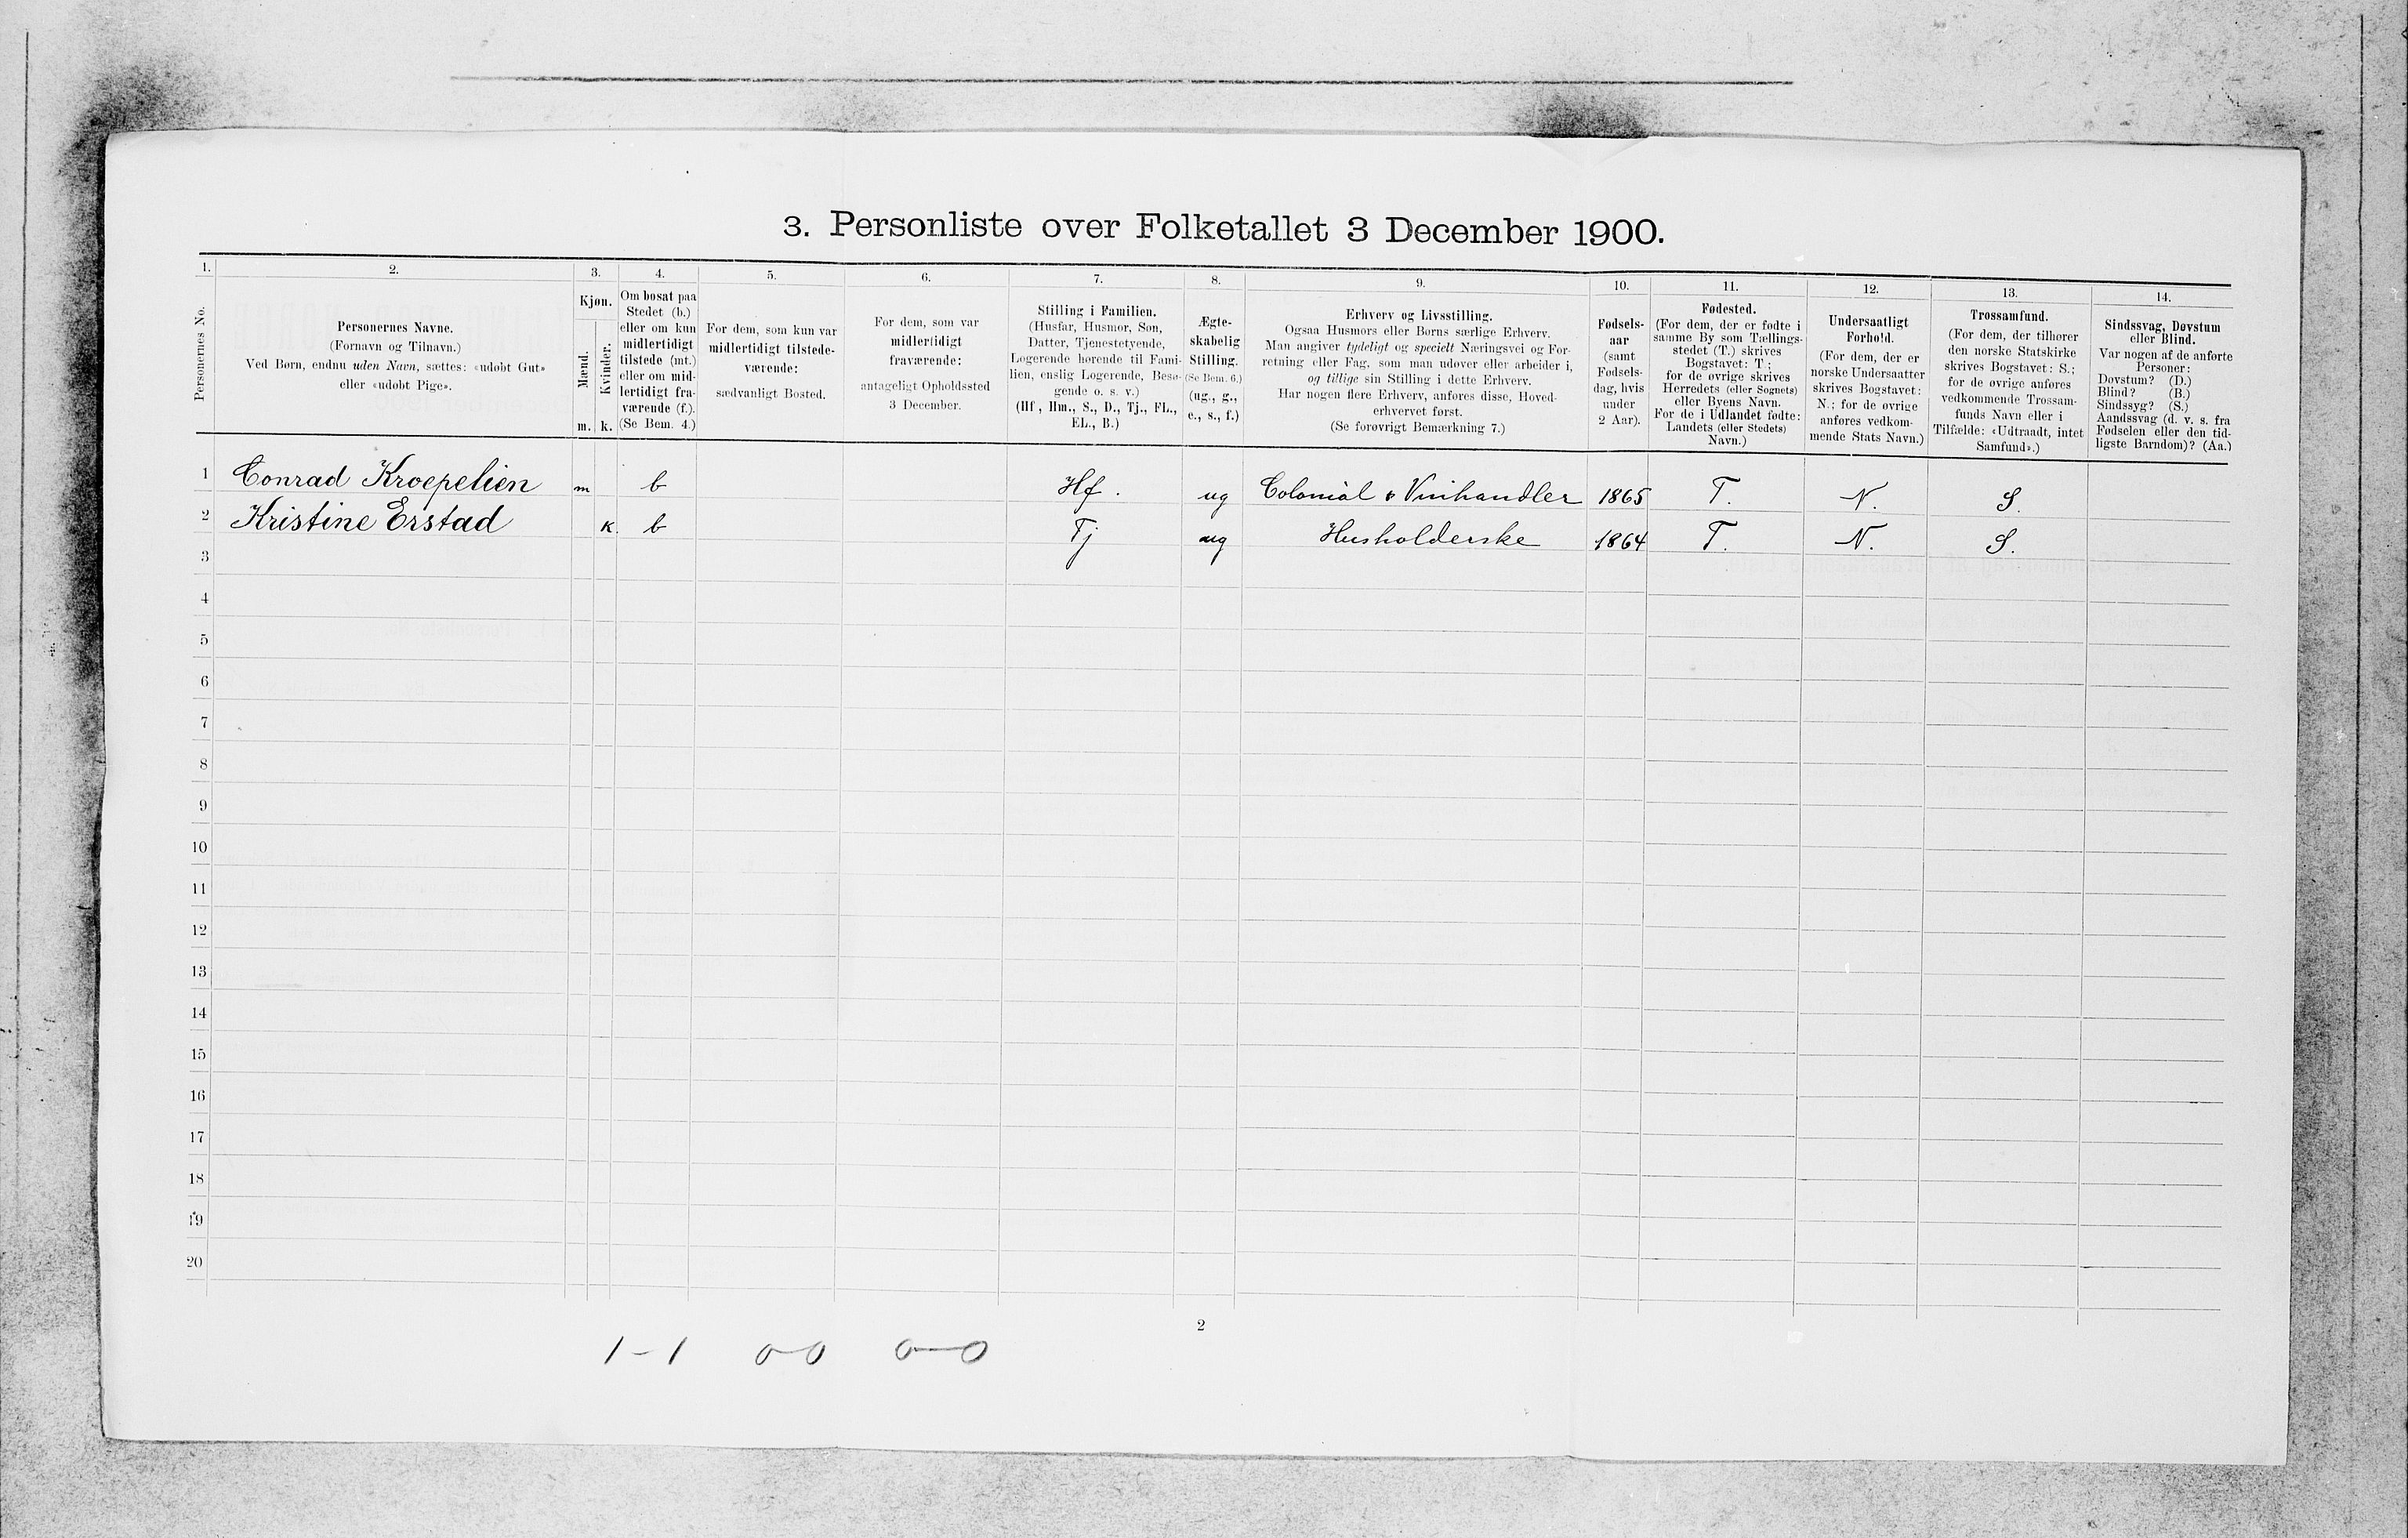 3. Personliste over Folketallet 3 December 1900.
1. 2. 3. 4. 5. 6. 7. 8. 9. 10. 11. 12. 13. 14.
Personernes No.
Personernes Navne.
(Fornavn og Tilnavn.)
Ved Børn, endnu uden Navn, sættes: «udøbt Gut»
eller «udøbt Pige».
Kjøn.
Mænd.
Kvinder.
m. k.
Om bosat paa
Stedet (b.)
eller om kun
midlertidigt
tilstede (mt.)
eller om mid-
lertidigt fra-
værende (f.).
(Se Bem. 4.)
For dem, som kun var
midlertidigt tilstede-
værende:
sædvanligt Bosted.
For dem, som var
midlertidigt
fraværende:
antageligt Opholdssted
3 December.
Stilling i Familien.
(Husfar, Husmor, Søn,
Datter, Tjenestetyende,
Logerende hørende til Fami-
lien, enslig Logerende, Besø-
gende o. s. v.)
(Hf, Hm., S., D., Tj., FL.,
EL., B.)
Ægte-
skabelig
Stilling.
(Se Bem. 6.)
(ug., g.,
e., s., f.)
Erhverv og Livsstilling.
Ogsaa Husmors eller Børns særlige Erhverv.
Man angiver tydeligt og specielt Næringsvei og For-
retning eller Fag, som man udøver eller arbeider i,
og tillige sin Stilling i dette Erhverv.
Har nogen flere Erhverv, anføres disse, Hoved-
erhvervet først.
(Se forøvrigt Bemærkning 7.)
Fødsels-
aar
(samt
Fødsels-
dag, hvis
under
2 Aar).
Fødested.
(For dem, der er fødte i
samme By som Tællings-
stedet (T.) skrives
Bogstavet: T.;
for de øvrige skrives
Herredets (eller Sognets)
eller Byens Navn.
For de i Udlandet fødte:
Landets (eller Stedets)
Navn.)
Undersaatligt
Forhold.
(For dem, der er
norske Undersaatter
skrives Bogstavet:
N.; for de øvrige
anføres vedkom-
mende Stats Navn.)
Trossamfund.
(For dem, der tilhører
den norske Statskirke
skrives Bogstavet: S.;
for de øvrige anføres
vedkommende Trossam-
funds Navn eller i
Tilfælde: «Udtraadt, intet
Samfund».)
Sindssvag, Døvstum
eller Blind.
Var nogen af de anførte
Personer:
Døvstum? (D.)
Blind? (B.)
Sindssyg? (S.)
Aandssvag (d. v. s. fra
Fødselen eller den tid-
ligste Barndom)? (Aa.)
1 Conrad Kroepelien m b Hf. ug Colonial & Vinhandler 1865 T. N. S.
2 Kristine Erstad K. b Tj ug Husholderske 1864 T. N. S.
3
4
5
6
7
8
9
10
11
12
13
14
15
16
17
18
19
20
2
1-1 0-0 0-0